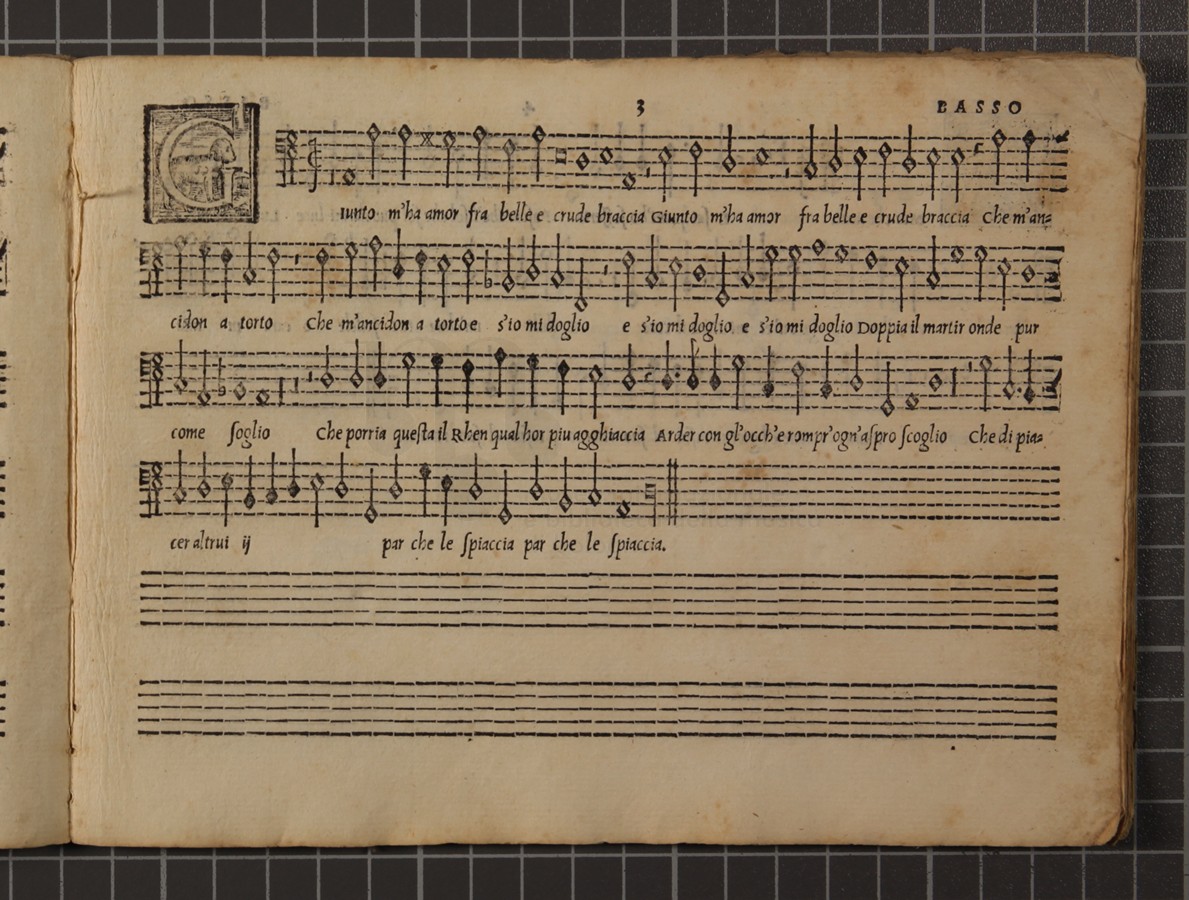 3 BASSO
Giunto m'ha amor fra belle e crude braccia Giunto m'ha amor fra belle e crude braccia Che m'an=
cidon a torto Che m'ancidon a torto e s'io mi doglio e s'io mi doglio e s'io mi doglio Doppia il martir onde pur
come ſoglio Che porria queſta il Rhen qual hor piu agghiaccia Arder con gl'occh'e rompr'ogn'aſpro ſcoglio Che di pia=
cer altrui ij par che le ſpiaccia par che le ſpiaccia.